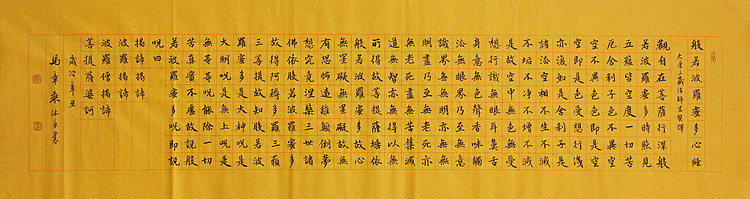 般若波羅蜜多心經
大唐三藏法師玄奘譯
觀自在菩薩行深般
若波羅蜜多時照見
五蘊皆空度一切苦
厄舍利子色不異空
空不異色色即是空
空即是色受想行識
亦復如是舍利子是
諸法空相不生不滅
不垢不淨不增不減
是故空中無色無受
想行識無眼耳鼻舌
身意無色聲香味觸
法無眼界乃至無意
識界無無明亦無無
明盡乃至無老死亦
無老死盡無苦集滅
道無智亦無得以無
所得故菩提薩埵依
般若波羅蜜多故心
無罣礙無罣礙故無
有恐怖遠離顛倒夢
想究竟涅槃三世諸
佛依般若波羅蜜多
故得阿耨多羅三藐
三菩提故知般若波
羅蜜多是大神咒是
大明咒是無上咒是
無等等咒能除一切
苦真實不虛故說般
若波羅蜜多咒即說
咒曰
揭諦揭諦
波羅揭諦
波羅僧揭諦
菩提薩婆訶
歲次辛丑
沐手書